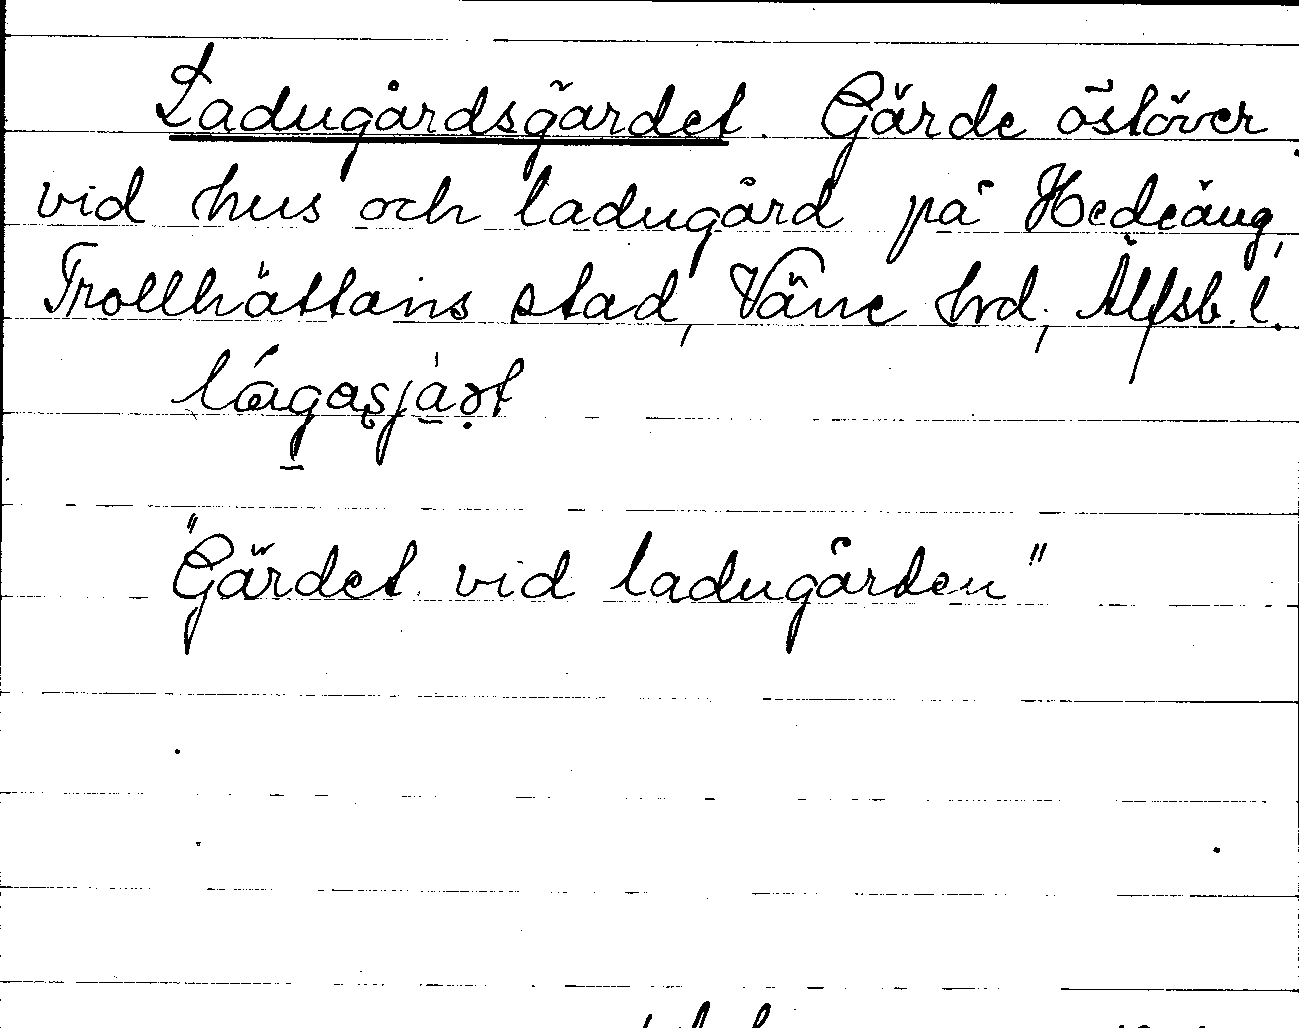 Ladugårdsgärdet. Gärde östöver
vid hus och ladugård på Hedeäng,
Trollhättans stad, Väne hrd, Älfsb. l.
"Gärdet vid ladugården"